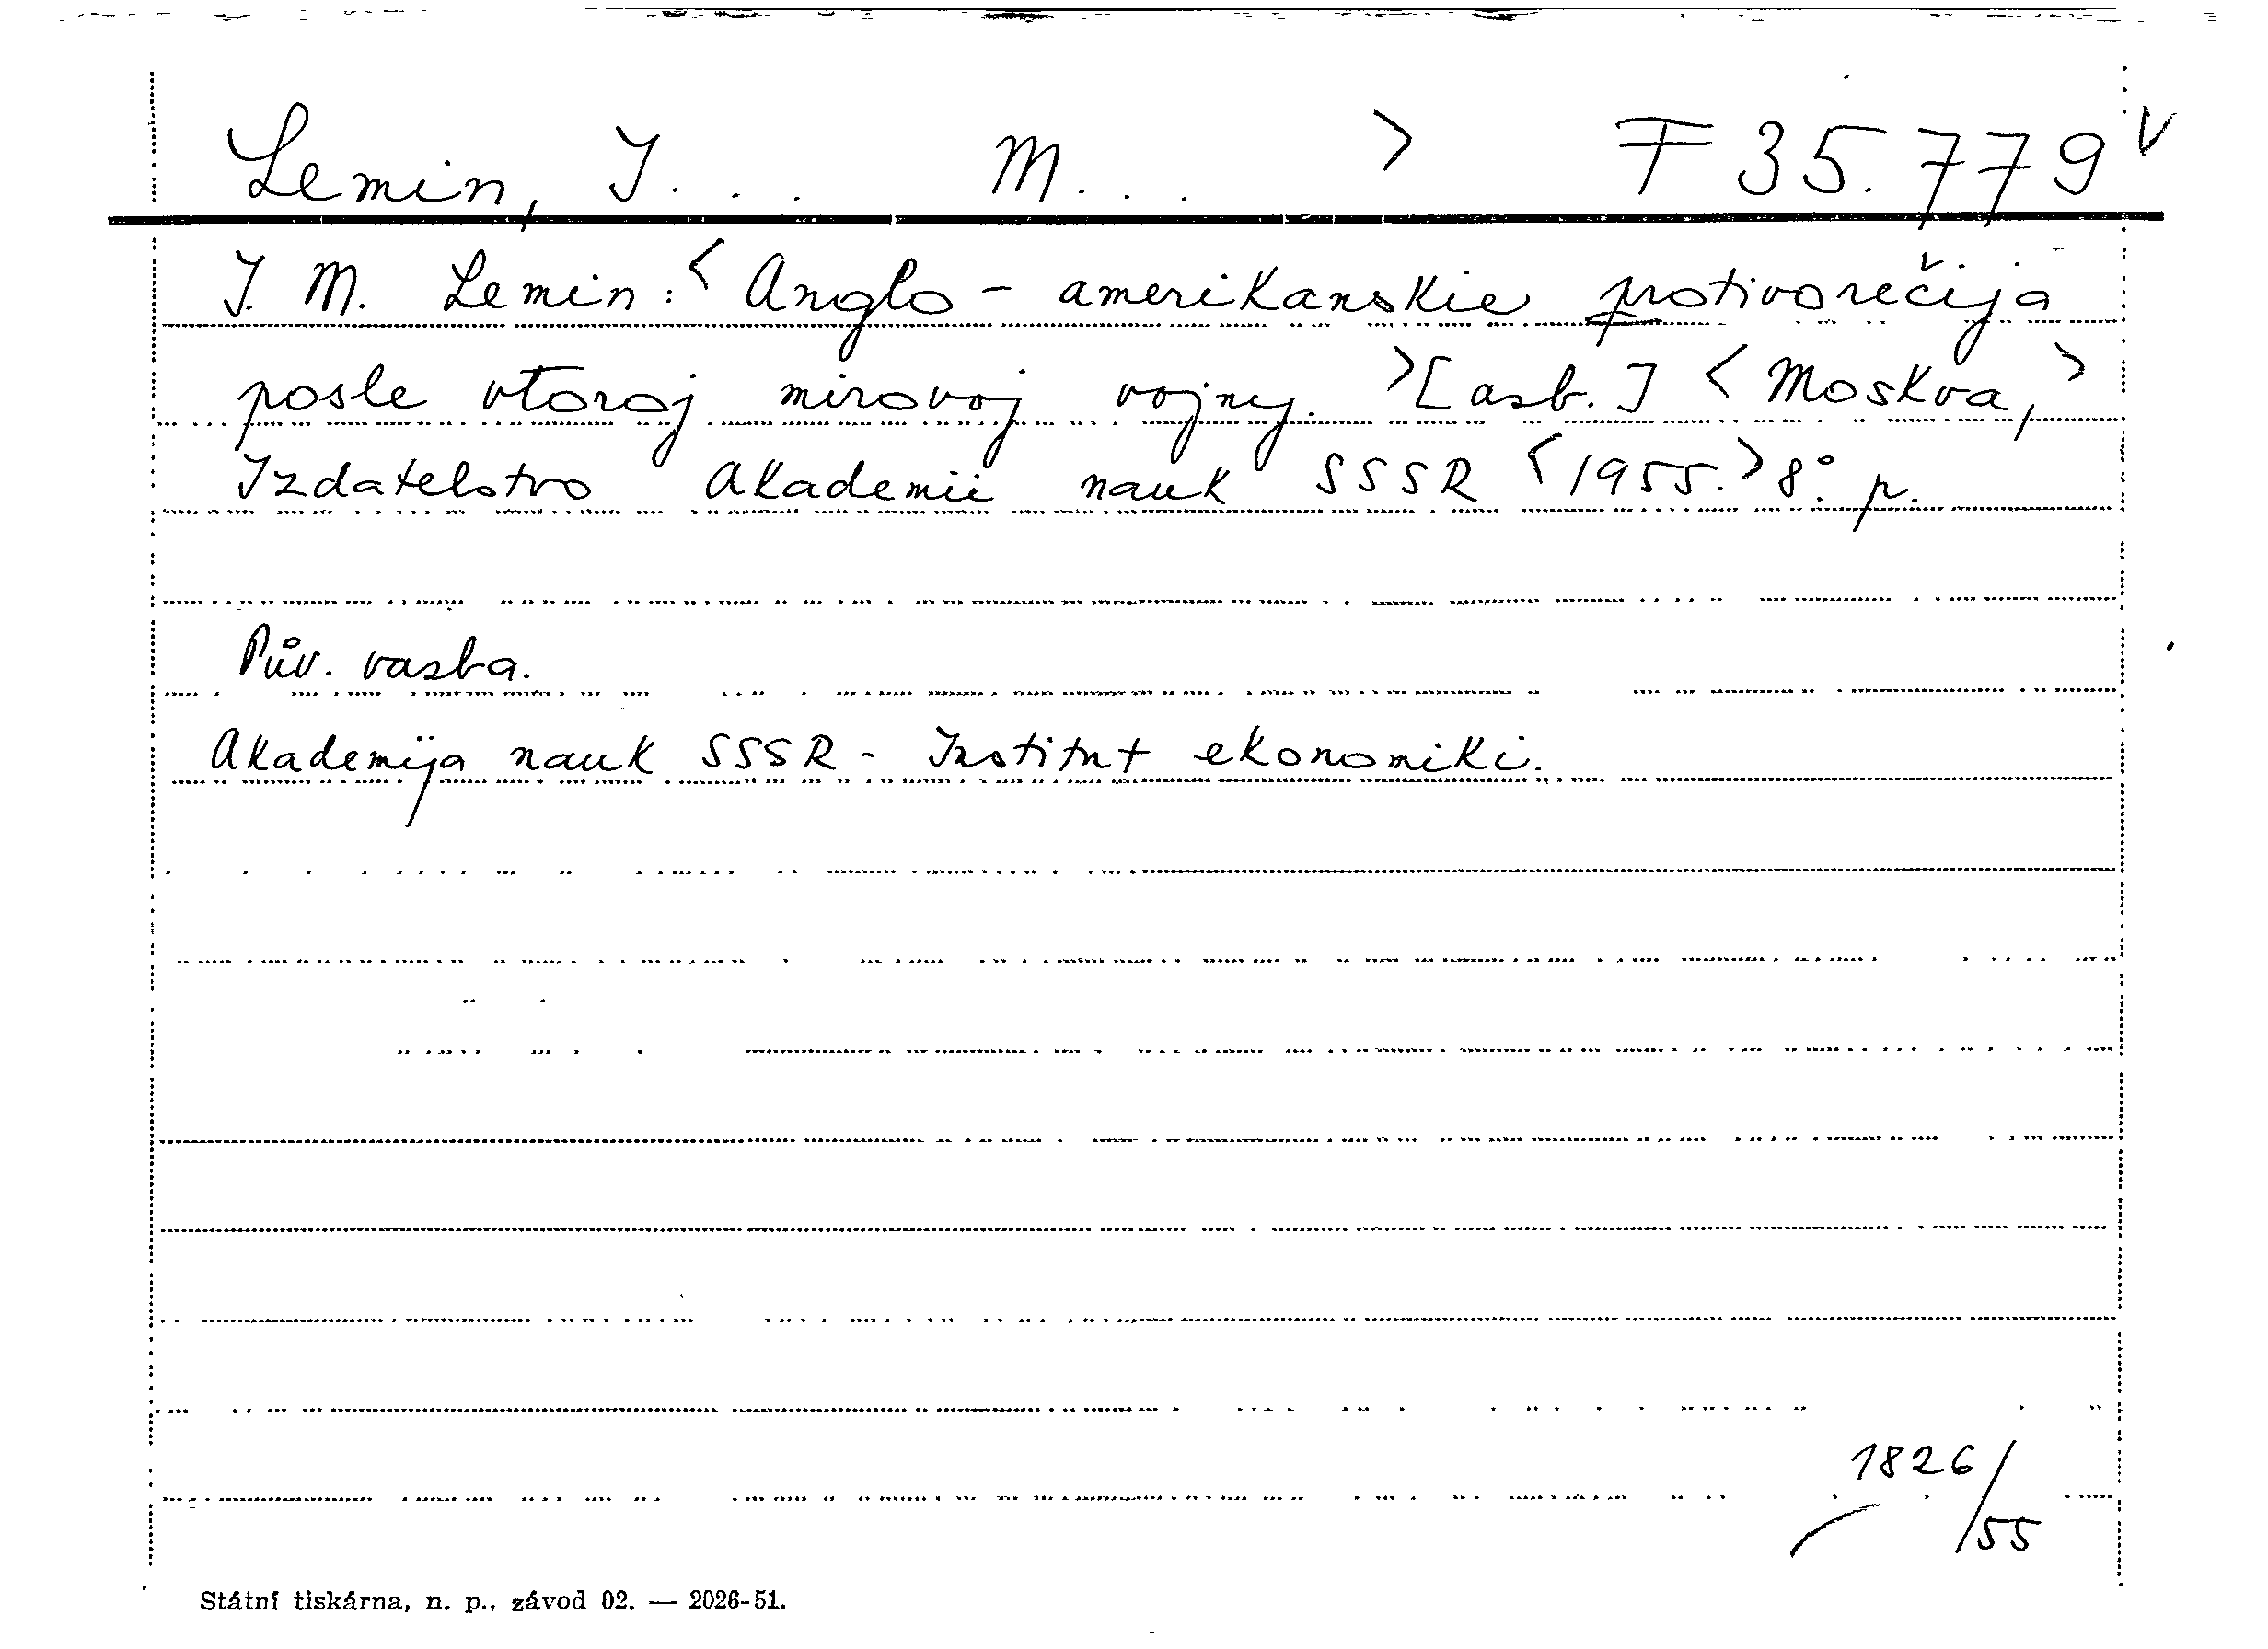 Lemin, I... M... > F 35.779 v
I. M. Lemin: < Anglo - amerikanskie protivorečija
posle vtoroj mirovoj vojny. > [asb.] < Moskva, >
Izdatelstvo Akademii nauk SSSR < 1955. > 8°. p.
Pův. vazba.
Akademija nauk SSSR - Institut ekonomiki.
1826/55
Státní tiskárna, n. p., závod 02. — 2026-51.